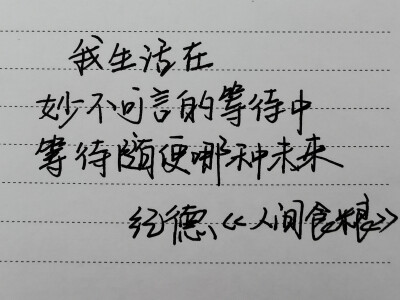 我生活在
妙不可言的等待中
等待随便哪种未来
纪德《人间食粮》